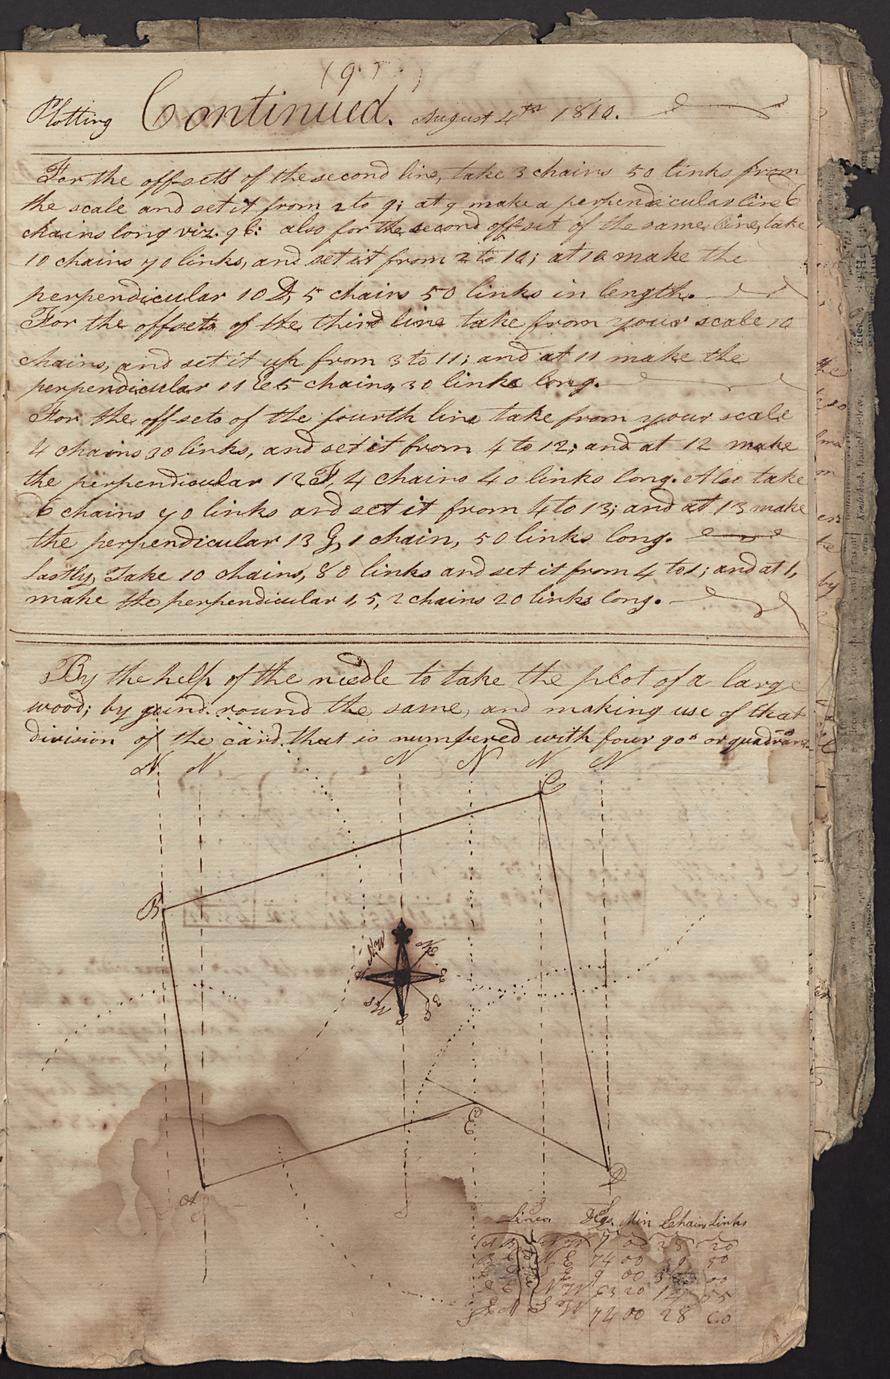 Plotting Continued. August 4th 1810.
For the offsetts of the second line, take 3 chains 50 links from
the scale and set it from 2 to 9; at 9 make a perpendicular line 6
chains long viz. 9 C: also for the second offset of the same line, take
10 chains 70 links, and set it from 2 to 10; at 10 make the
perpendicular 10 D, 5 chains 50 links in length.
For the offsets of the third line take from your scale 10
chains, and set it up from 3 to 11; and at 11 make the
perpendicular 11 E 5 chains, 30 links long.
For the offsets of the fourth line take from your scale
4 chains 30 links, and set it from 4 to 12; and at 12 make
the perpendicular 12 F, 4 chains 40 links long. Also take
6 chains 70 links and set it from 4 to 13; and at 13 make
the perpendicular 13 G, 1 chain, 50 links long.
Lastly, Take 10 chains, 80 links and set it from 4 to 1; and at 1,
make the perpendicular 1, 5, 2 chains 20 links long.
By the help of the needle to take the plot of a large
wood; by going round the same, and making use of that
division of the card that is numbered with four 90s or quadrans
N N N N N N
C
B
NW NE
E
SW SE
S
E
D
A
S S
Lines Deg Min Chain Links
A B N W 7 00 20
N E 74 00 50
00 00
N W 63 20 14 55
E A S W 74 00 28 60